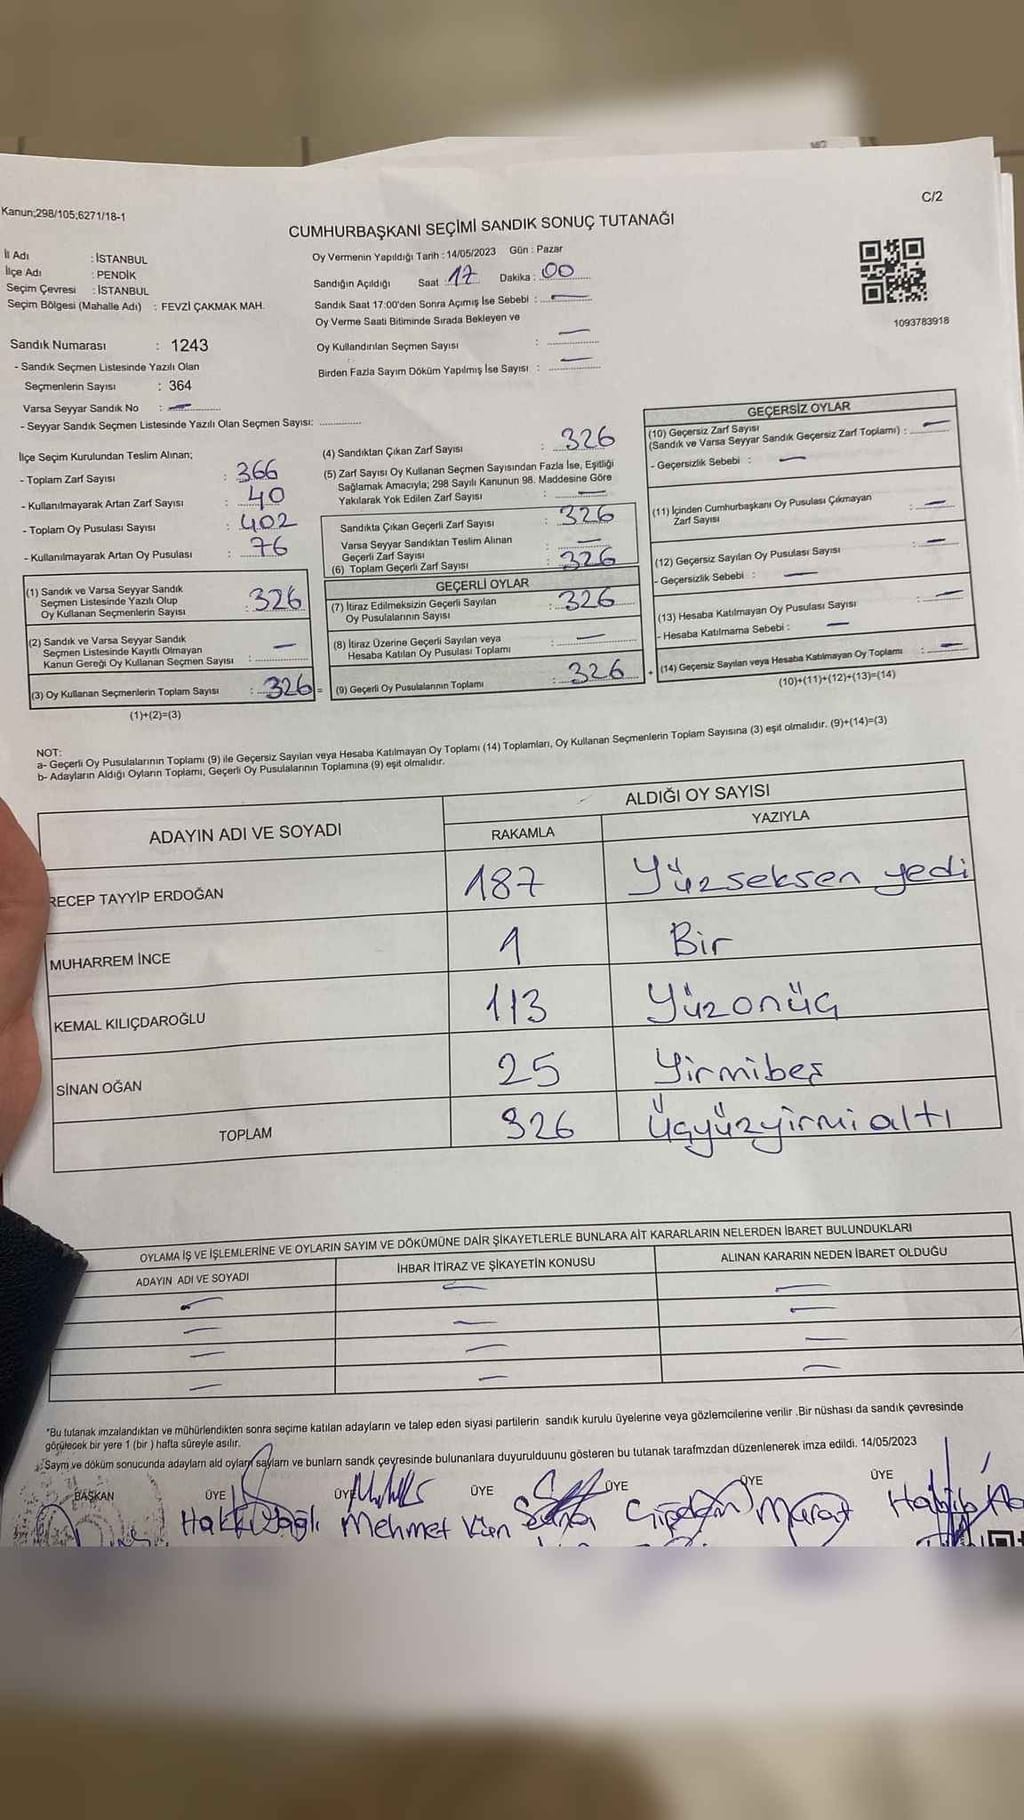 C/2
Kanun;298/105;6271/18-1
CUMHURBAŞKANI SEÇİMİ SANDIK SONUÇ TUTANAĞI
İl Adı : İSTANBUL
İlçe Adı : PENDİK
Seçim Çevresi : İSTANBUL
Seçim Bölgesi (Mahalle Adı) : FEVZİ ÇAKMAK MAH.
Oy Vermenin Yapıldığı Tarih : 14/05/2023 Gün : Pazar
Sandığın Açıldığı Saat : 17 Dakika : 00
Sandık Saat 17:00'den Sonra Açımış İse Sebebi : —
Oy Verme Saati Bitiminde Sırada Bekleyen ve
Oy Kullandırılan Seçmen Sayısı : —
Birden Fazla Sayım Döküm Yapılmış İse Sayısı : —
1093783918
Sandık Numarası : 1243
- Sandık Seçmen Listesinde Yazılı Olan
Seçmenlerin Sayısı : 364
Varsa Seyyar Sandık No : —
- Seyyar Sandık Seçmen Listesinde Yazılı Olan Seçmen Sayısı:
İlçe Seçim Kurulundan Teslim Alınan;
- Toplam Zarf Sayısı : 366
- Kullanılmayarak Artan Zarf Sayısı : 40
- Toplam Oy Pusulası Sayısı : 402
- Kullanılmayarak Artan Oy Pusulası : 76
(1) Sandık ve Varsa Seyyar Sandık
Seçmen Listesinde Yazılı Olup
Oy Kullanan Seçmenlerin Sayısı : 326
(2) Sandık ve Varsa Seyyar Sandık
Seçmen Listesinde Kayıtlı Olmayan
Kanun Gereği Oy Kullanan Seçmen Sayısı : —
(3) Oy Kullanan Seçmenlerin Toplam Sayısı : 326 =
(1)+(2)=(3)
(4) Sandıktan Çıkan Zarf Sayısı : 326
(5) Zarf Sayısı Oy Kullanan Seçmen Sayısından Fazla İse, Eşitliği
Sağlamak Amacıyla; 298 Sayılı Kanunun 98. Maddesine Göre
Yakılarak Yok Edilen Zarf Sayısı : —
Sandıkta Çıkan Geçerli Zarf Sayısı : 326
Varsa Seyyar Sandıktan Teslim Alınan
Geçerli Zarf Sayısı : —
(6) Toplam Geçerli Zarf Sayısı : 326
GEÇERLİ OYLAR
(7) İtiraz Edilmeksizin Geçerli Sayılan
Oy Pusulalarının Sayısı : 326
(8) İtiraz Üzerine Geçerli Sayılan veya
Hesaba Katılan Oy Pusulası Toplamı : —
(9) Geçerli Oy Pusulalarının Toplamı : 326 +
GEÇERSİZ OYLAR
(10) Geçersiz Zarf Sayısı
(Sandık ve Varsa Seyyar Sandık Geçersiz Zarf Toplamı) : —
- Geçersizlik Sebebi : —
(11) İçinden Cumhurbaşkanı Oy Pusulası Çıkmayan
Zarf Sayısı : —
(12) Geçersiz Sayılan Oy Pusulası Sayısı : —
- Geçersizlik Sebebi : —
(13) Hesaba Katılmayan Oy Pusulası Sayısı : —
- Hesaba Katılmama Sebebi : —
(14) Geçersiz Sayılan veya Hesaba Katılmayan Oy Toplamı : —
(10)+(11)+(12)+(13)=(14)
NOT:
a- Geçerli Oy Pusulalarının Toplamı (9) ile Geçersiz Sayılan veya Hesaba Katılmayan Oy Toplamı (14) Toplamları, Oy Kullanan Seçmenlerin Toplam Sayısına (3) eşit olmalıdır. (9)+(14)=(3)
b- Adayların Aldığı Oyların Toplamı, Geçerli Oy Pusulalarının Toplamına (9) eşit olmalıdır.
ADAYIN ADI VE SOYADI ALDIĞI OY SAYISI
RAKAMLA YAZIYLA
RECEP TAYYİP ERDOĞAN 187 Yüzseksen yedi
MUHARREM İNCE 1 Bir
KEMAL KILIÇDAROĞLU 113 Yüzonüç
SİNAN OĞAN 25 Yirmibeş
TOPLAM 326 Üçyüzyirmi altı
OYLAMA İŞ VE İŞLEMLERİNE VE OYLARIN SAYIM VE DÖKÜMÜNE DAİR ŞİKAYETLERLE BUNLARA AİT KARARLARIN NELERDEN İBARET BULUNDUKLARI
ADAYIN ADI VE SOYADI İHBAR İTİRAZ VE ŞİKAYETİN KONUSU ALINAN KARARIN NEDEN İBARET OLDUĞU
— — —
— — —
— — —
— — —
*Bu tutanak imzalandıktan ve mühürlendikten sonra seçime katılan adayların ve talep eden siyasi partilerin sandık kurulu üyelerine veya gözlemcilerine verilir .Bir nüshası da sandık çevresinde
görülecek bir yere 1 (bir ) hafta süreyle asılır.
Sayım ve döküm sonucunda adayların ald oyların sayların ve bunların sandk çevresinde bulunanlara duyurulduunu gösteren bu tutanak tarafmzdan düzenlenerek imza edildi. 14/05/2023
BAŞKAN ÜYE ÜYE ÜYE ÜYE ÜYE ÜYE
Hakkı Mehmet Murat